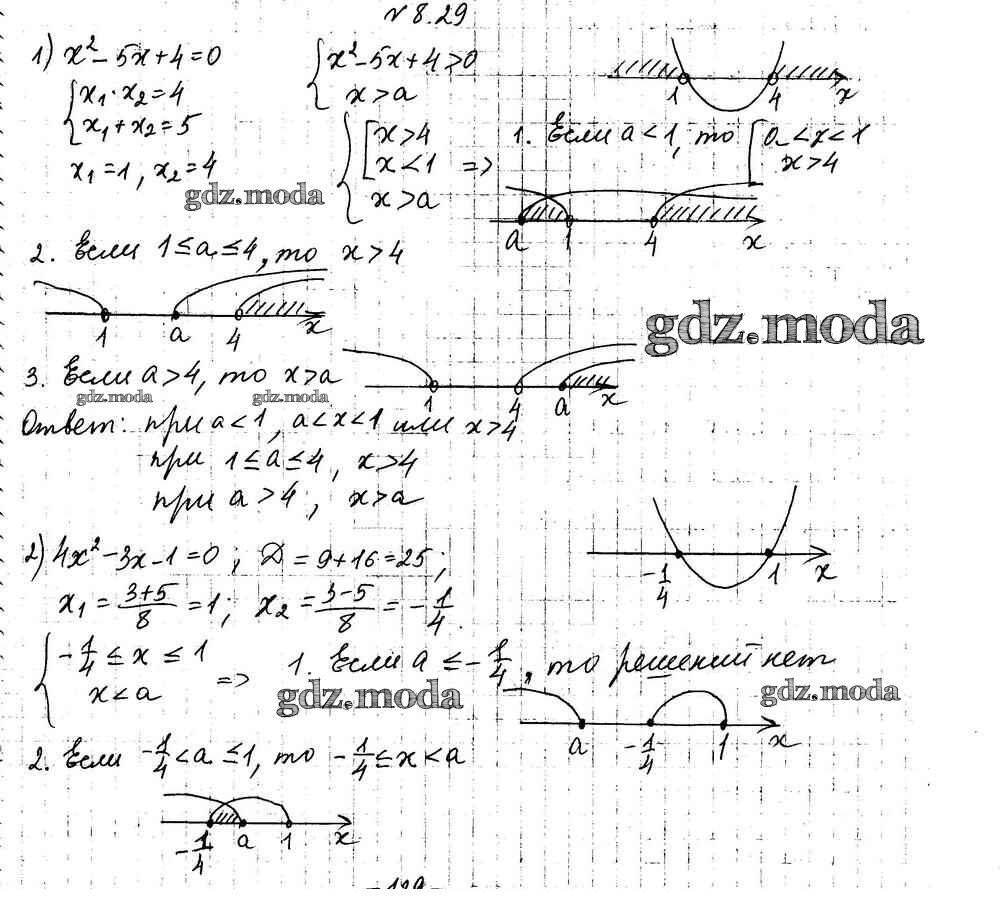 № 8.29
1) x² - 5x + 4 = 0
{ x₁ · x₂ = 4
x₁ + x₂ = 5
x₁ = 1, x₂ = 4
{ x² - 5x + 4 > 0
x > a
{ [ x > 4
x < 1
x > a
=>
1 4 x
1. Если a < 1, то [ a < x < 1
x > 4
a 1 4 x
gdz.moda
2. Если 1 ≤ a ≤ 4, то x > 4
1 a 4 x
gdz.moda
3. Если a > 4, то x > a
1 4 a x
gdz.moda gdz.moda
Ответ: при a < 1, a < x < 1 или x > 4
при 1 ≤ a ≤ 4, x > 4
при a > 4, x > a
2) 4x² - 3x - 1 = 0; D = 9 + 16 = 25;
x₁ = (3+5)/8 = 1; x₂ = (3-5)/8 = -1/4.
-1/4 1 x
{ -1/4 ≤ x ≤ 1
x < a
=> 1. Если a ≤ -1/4, то решений нет
gdz.moda gdz.moda
a -1/4 1 x
2. Если -1/4 < a ≤ 1, то -1/4 ≤ x < a
-1/4 a 1 x